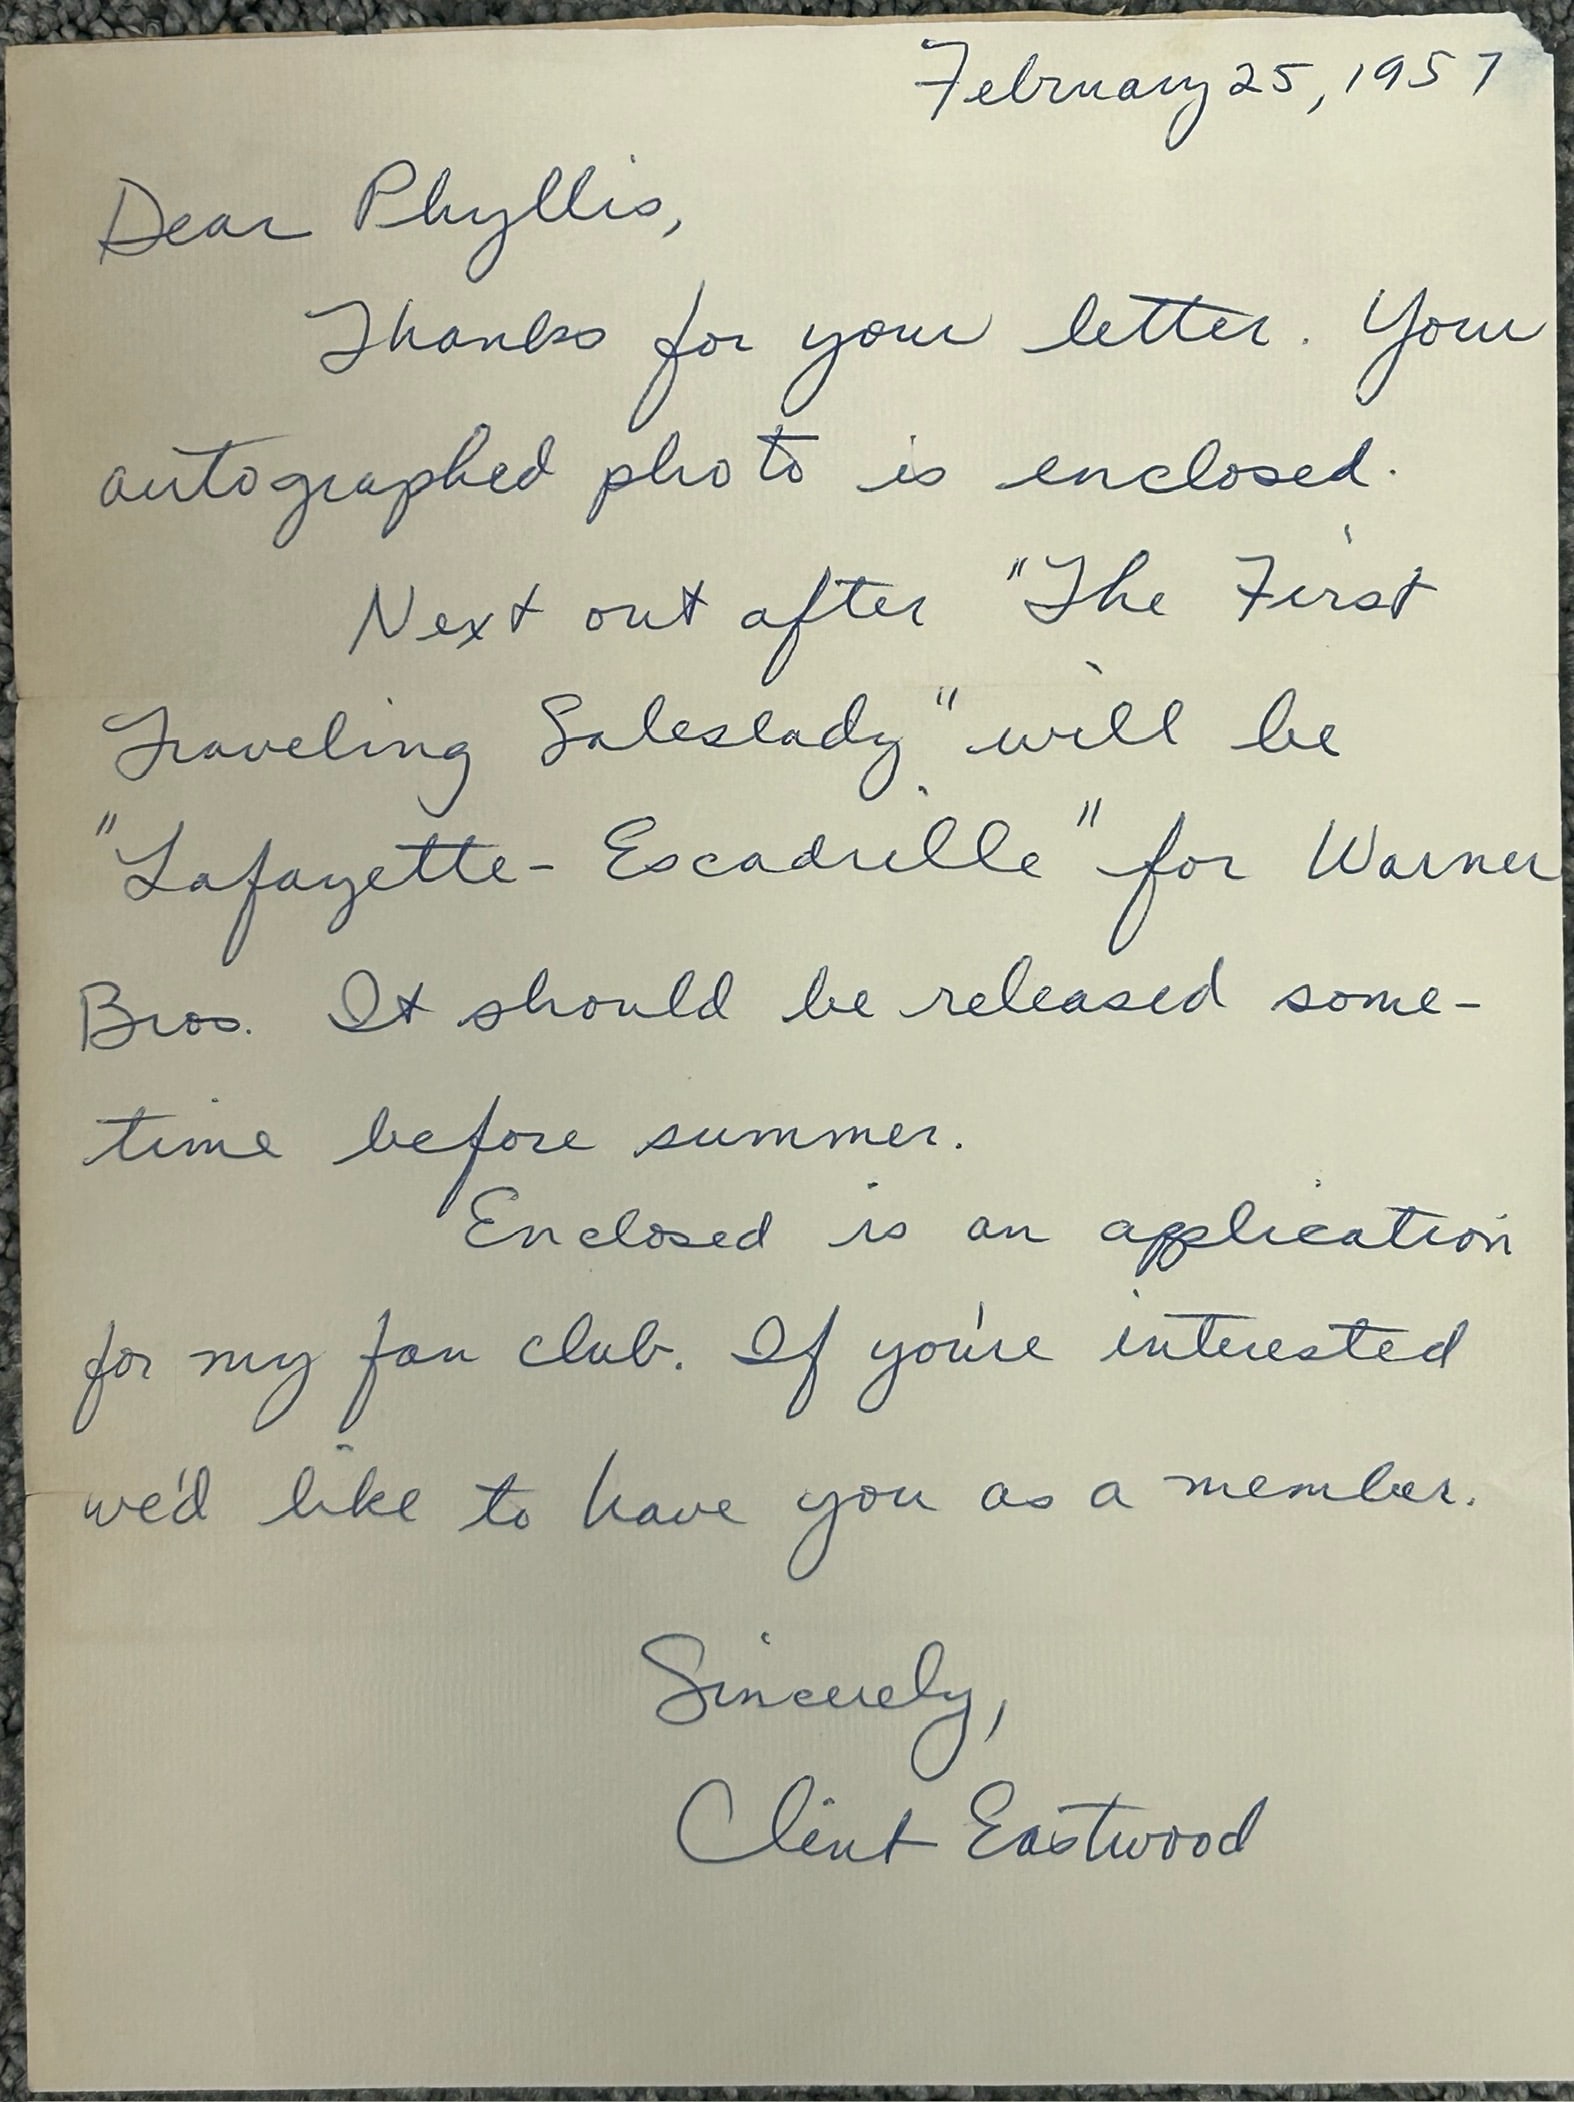 February 25, 1957
Dear Phyllis,
Thanks for your letter. Your
autographed photo is enclosed.
Next out after "The First
Traveling Saleslady" will be
"Lafayette-Escadrille" for Warner
Bros. It should be released some-
time before summer.
Enclosed is an application
for my fan club. If you're interested
we'd like to have you as a member.
Sincerely,
Clint Eastwood